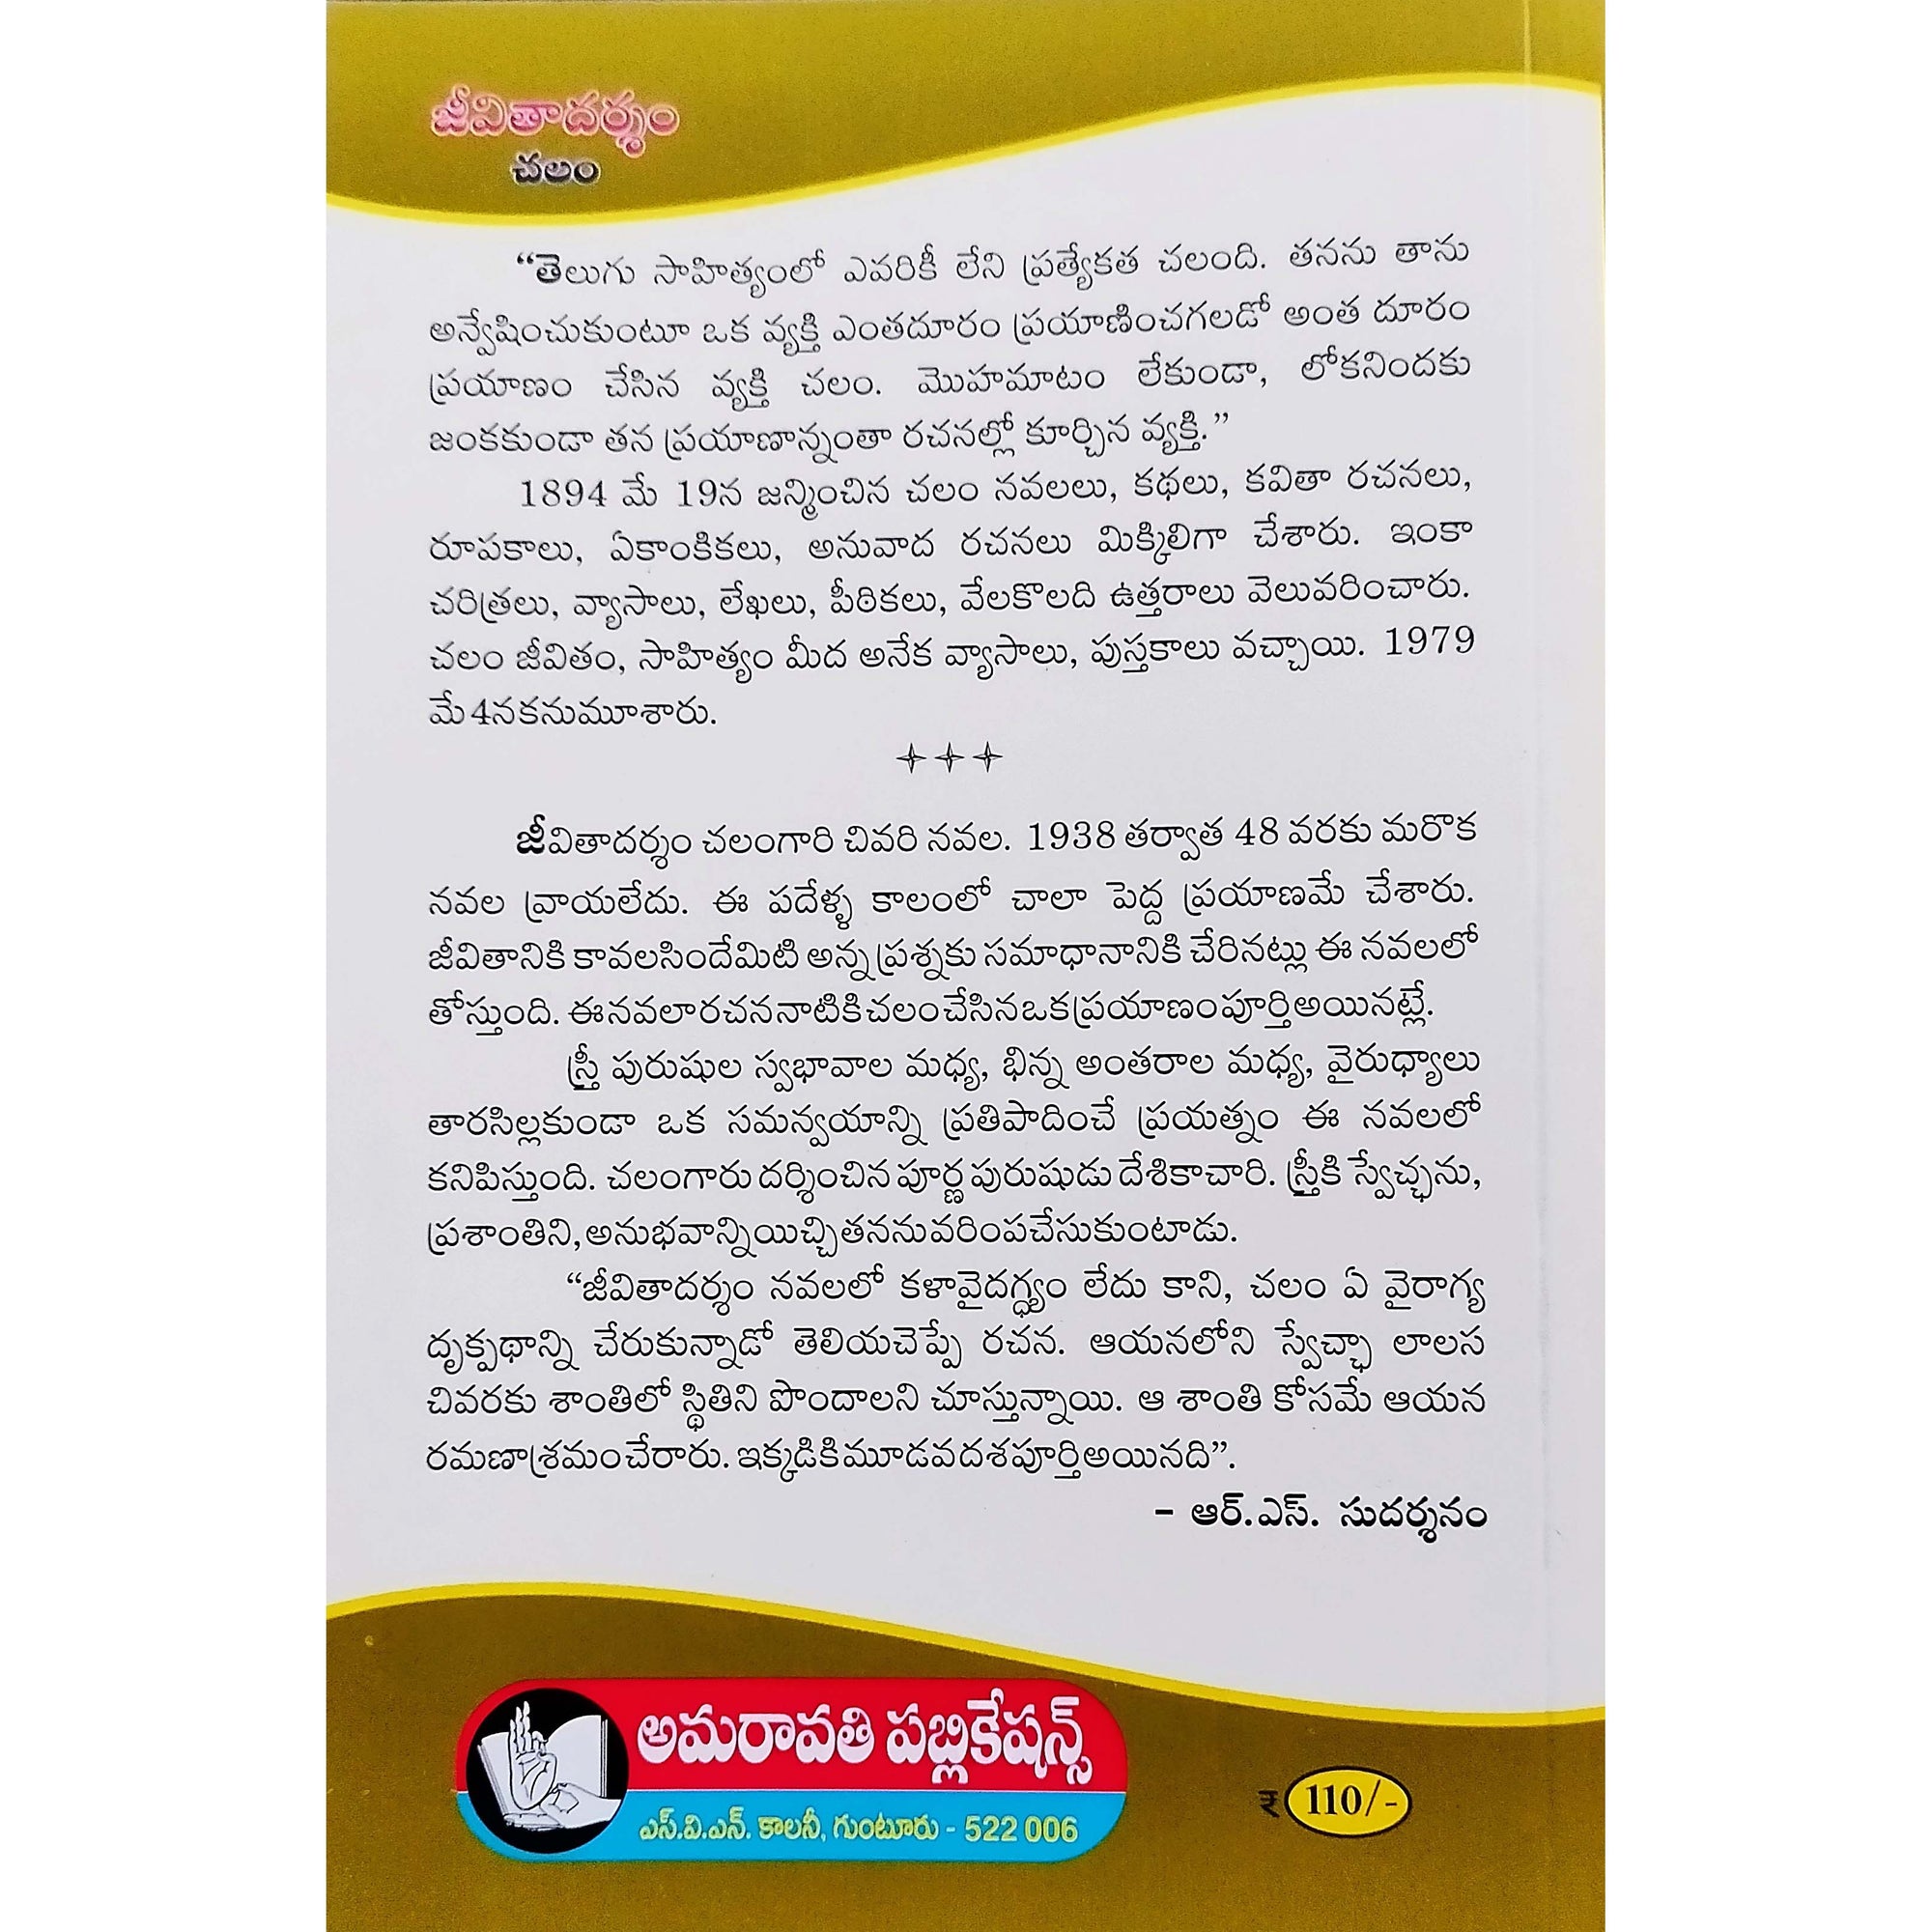 జీవితాదర్శం
చలం
“తెలుగు సాహిత్యంలో ఎవరికీ లేని ప్రత్యేకత చలంది. తనను తాను
అన్వేషించుకుంటూ ఒక వ్యక్తి ఎంతదూరం ప్రయాణించగలడో అంత దూరం
ప్రయాణం చేసిన వ్యక్తి చలం. మొహమాటం లేకుండా, లోకనిందకు
జంకకుండా తన ప్రయాణాన్నంతా రచనల్లో కూర్చిన వ్యక్తి.”
1894 మే 19న జన్మించిన చలం నవలలు, కథలు, కవితా రచనలు,
రూపకాలు, ఏకాంకికలు, అనువాద రచనలు మిక్కిలిగా చేశారు. ఇంకా
చరిత్రలు, వ్యాసాలు, లేఖలు, పీఠికలు, వేలకొలది ఉత్తరాలు వెలువరించారు.
చలం జీవితం, సాహిత్యం మీద అనేక వ్యాసాలు, పుస్తకాలు వచ్చాయి. 1979
మే 4న కనుమూశారు.
జీవితాదర్శం చలంగారి చివరి నవల. 1938 తర్వాత 48 వరకు మరొక
నవల వ్రాయలేదు. ఈ పదేళ్ళ కాలంలో చాలా పెద్ద ప్రయాణమే చేశారు.
జీవితానికి కావలసిందేమిటి అన్న ప్రశ్నకు సమాధానానికి చేరినట్లు ఈ నవలలో
తోస్తుంది. ఈ నవలా రచన నాటికి చలం చేసిన ఒక ప్రయాణం పూర్తి అయినట్లే.
స్త్రీ పురుషుల స్వభావాల మధ్య, భిన్న అంతరాల మధ్య, వైరుధ్యాలు
తారసిల్లకుండా ఒక సమన్వయాన్ని ప్రతిపాదించే ప్రయత్నం ఈ నవలలో
కనిపిస్తుంది. చలంగారు దర్శించిన పూర్ణ పురుషుడు దేశికాచారి. స్త్రీకి స్వేచ్ఛను,
ప్రశాంతిని, అనుభవాన్ని యిచ్చి తనను వరింపచేసుకుంటాడు.
“జీవితాదర్శం నవలలో కళావైదగ్ధ్యం లేదు కాని, చలం ఏ వైరాగ్య
దృక్పథాన్ని చేరుకున్నాడో తెలియచెప్పే రచన. ఆయనలోని స్వేచ్ఛా లాలస
చివరకు శాంతిలో స్థితిని పొందాలని చూస్తున్నాయి. ఆ శాంతి కోసమే ఆయన
రమణాశ్రమం చేరారు. ఇక్కడికి మూడవ దశ పూర్తి అయినది”.
– ఆర్.ఎస్. సుదర్శనం
అమరావతి పబ్లికేషన్స్
ఎస్.వి.ఎన్. కాలనీ, గుంటూరు - 522 006
₹ 110/-